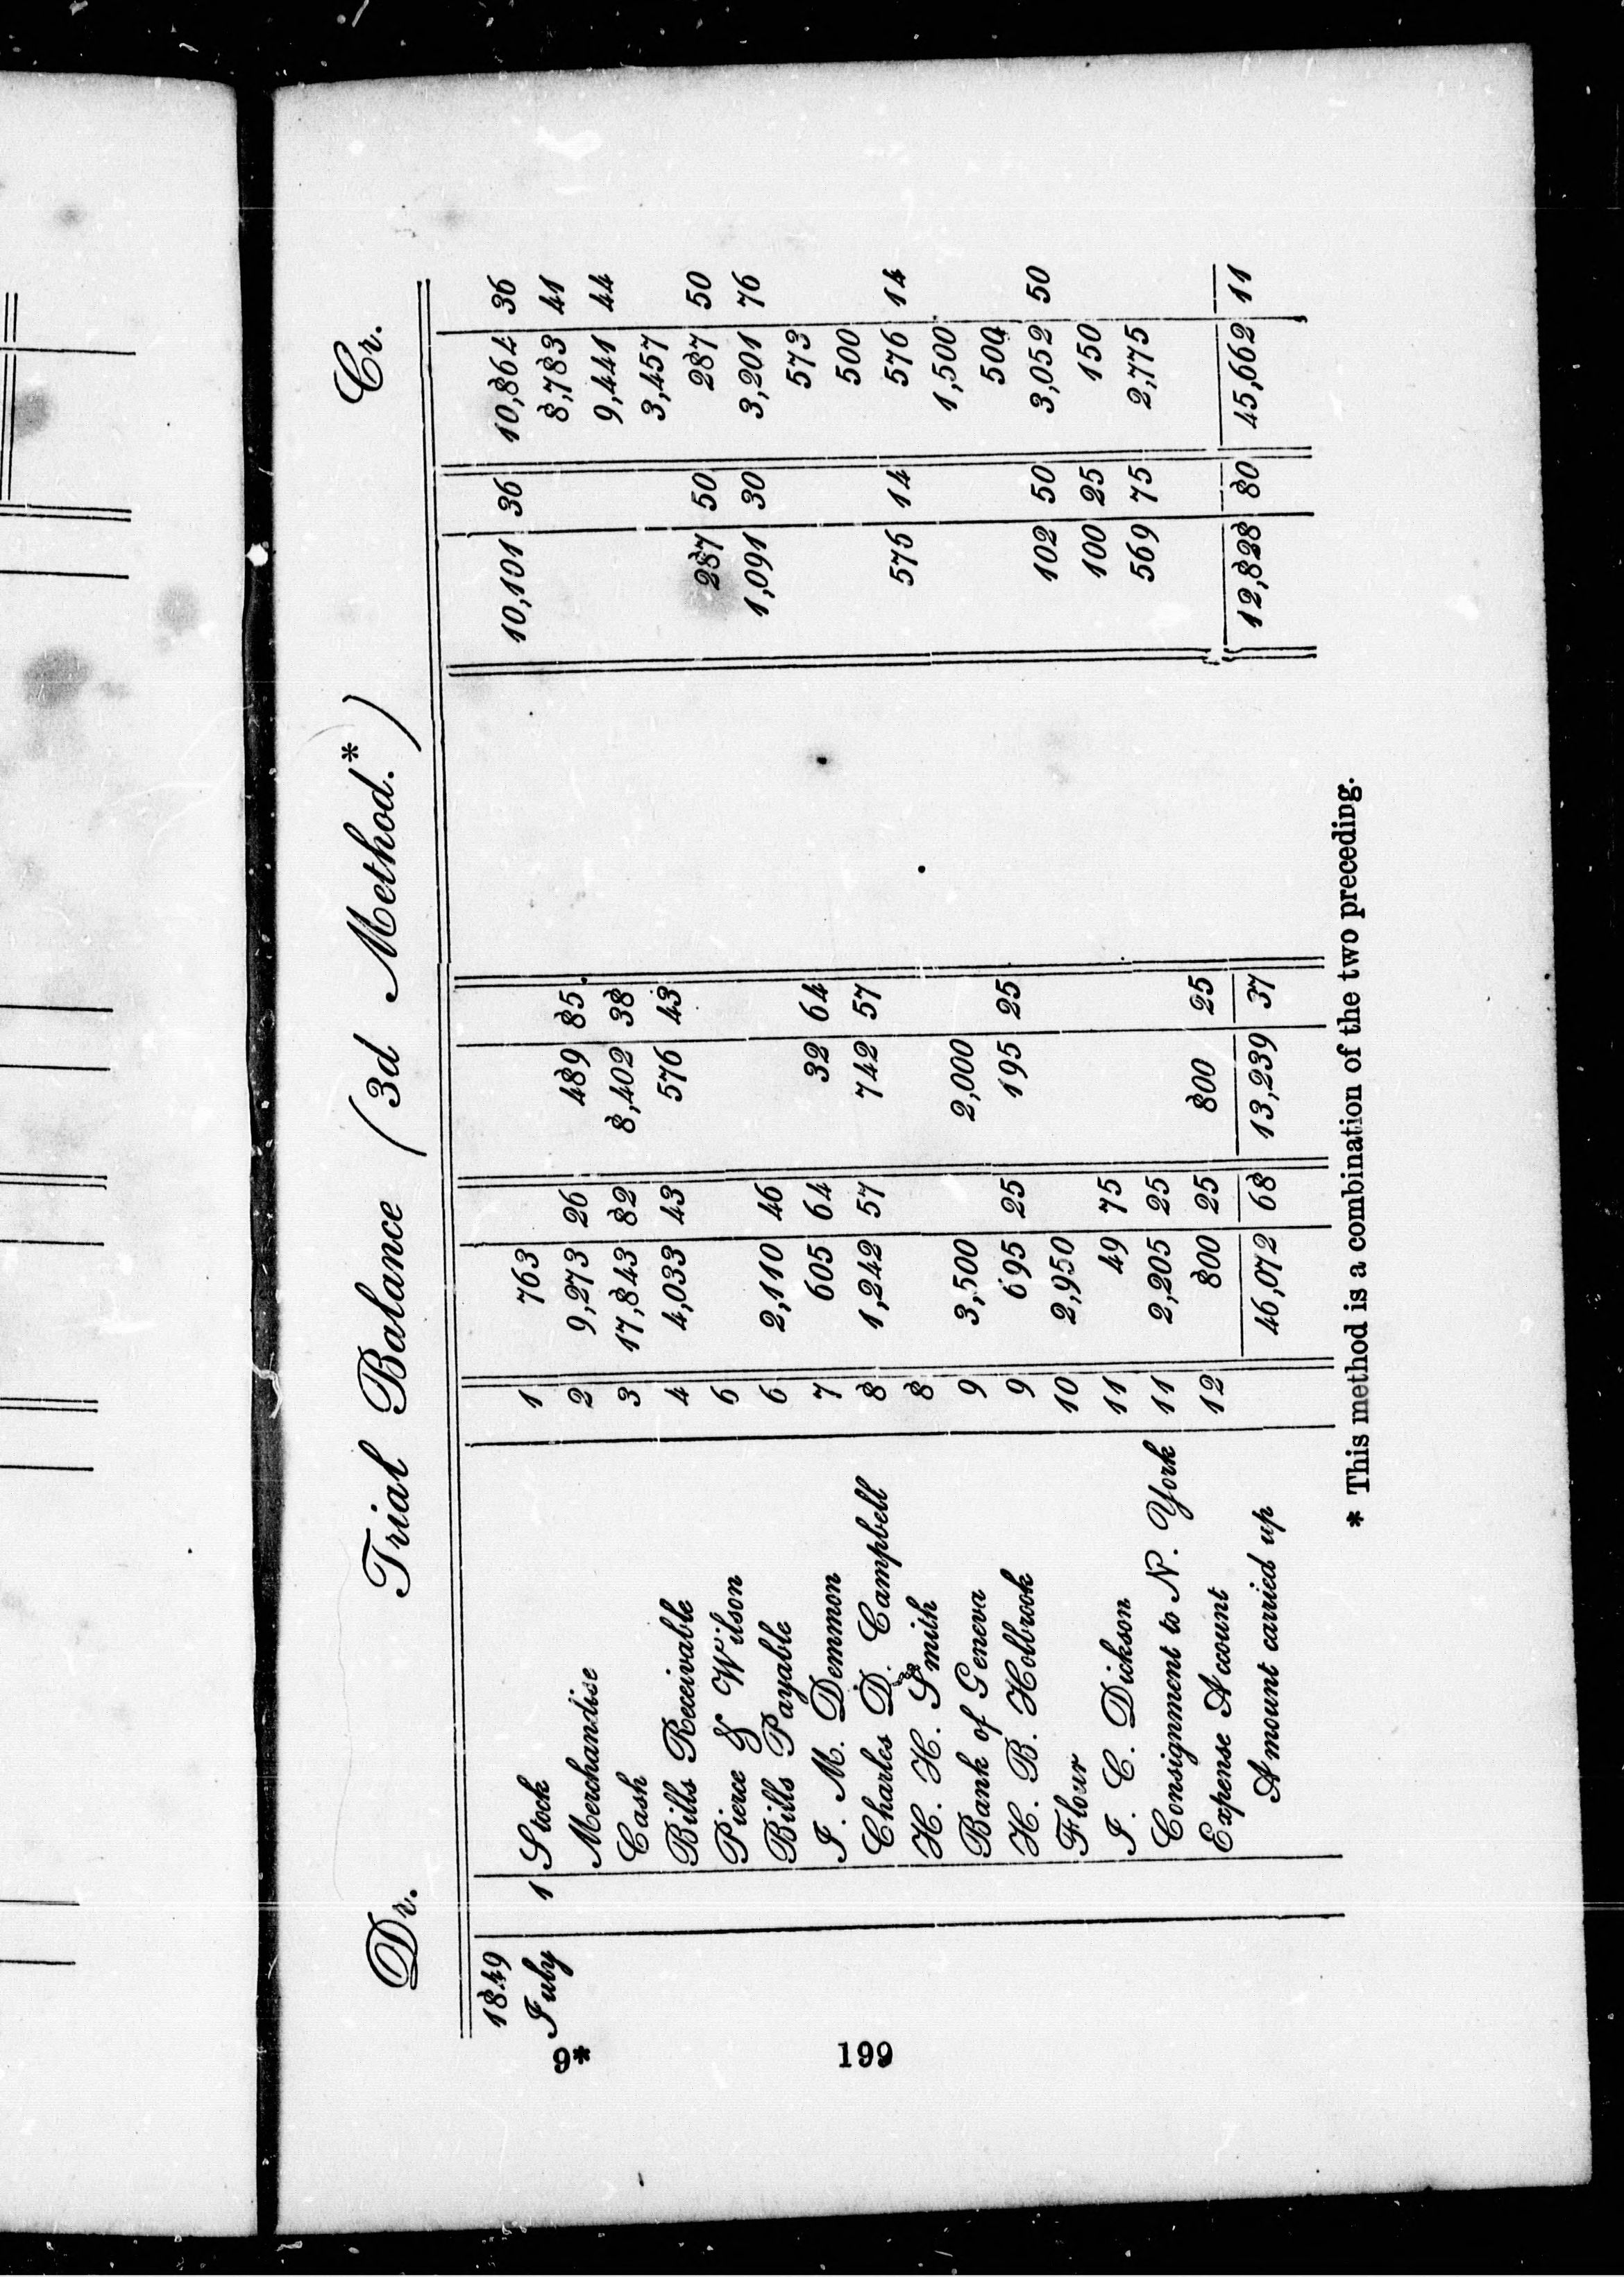 Dr. Trial Balance (3d Method.*) Cr.
1849
July 1 Stock 1 763 10,101 36 10,864 36
Merchandise 2 9,273 26 489 85 8,783 41
Cash 3 17,843 82 8,402 38 9,441 44
Bills Receivable 4 4,033 43 576 43 3,457
Pierce & Wilson 5 287 50 287 50
Bills Payable 6 2,110 46 1,091 30 3,201 76
J. M. Demmon 7 605 64 32 64 573
Charles D. Campbell 8 1,242 57 742 57 500
H. H. Smith 8 576 14 576 14
Bank of Geneva 9 3,500 2,000 1,500
H. B. Holbrook 9 695 25 195 25 500
Flour 10 2,950 102 50 3,052 50
J. C. Dickson 11 49 75 100 25 150
Consignment to N. York 11 2,205 25 569 75 2,775
Expense Account 12 800 25 800 25
Amount carried up 46,072 68 13,239 37 12,828 80 45,662 11
* This method is a combination of the two preceding.
9*
199